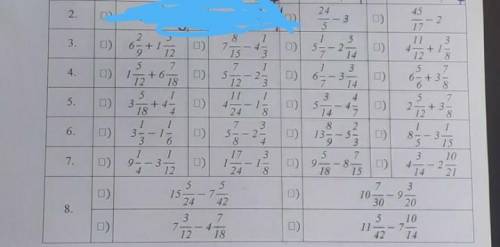 2. □) 24/5 − 3 □) 45/17 − 2
3. □) 6 2/9 + 1 5/12 □) 7 8/15 − 4 1/3 □) 5 1/7 − 2 5/14 □) 4 11/12 + 1 3/8
4. □) 1 5/12 + 6 7/18 □) 5 7/12 − 2 1/3 □) 6 1/7 − 3 3/14 □) 6 5/6 + 3 7/8
5. □) 3 5/18 + 4 1/4 □) 4 11/24 − 1 1/8 □) 5 3/14 − 4 4/7 □) 2 5/12 + 3 7/8
6. □) 3 1/3 − 1 1/6 □) 5 7/8 − 2 3/4 □) 13 8/9 − 5 2/3 □) 8 1/5 − 3 1/15
7. □) 9 1/4 − 3 1/12 □) 1 17/24 − 1 3/8 □) 9 5/18 − 8 7/15 □) 4 3/14 − 2 10/21
8. □) 15 5/24 − 7 5/42 □) 10 7/30 − 9 3/20
□) 7 3/12 − 4 7/18 □) 11 5/42 − 7 10/14